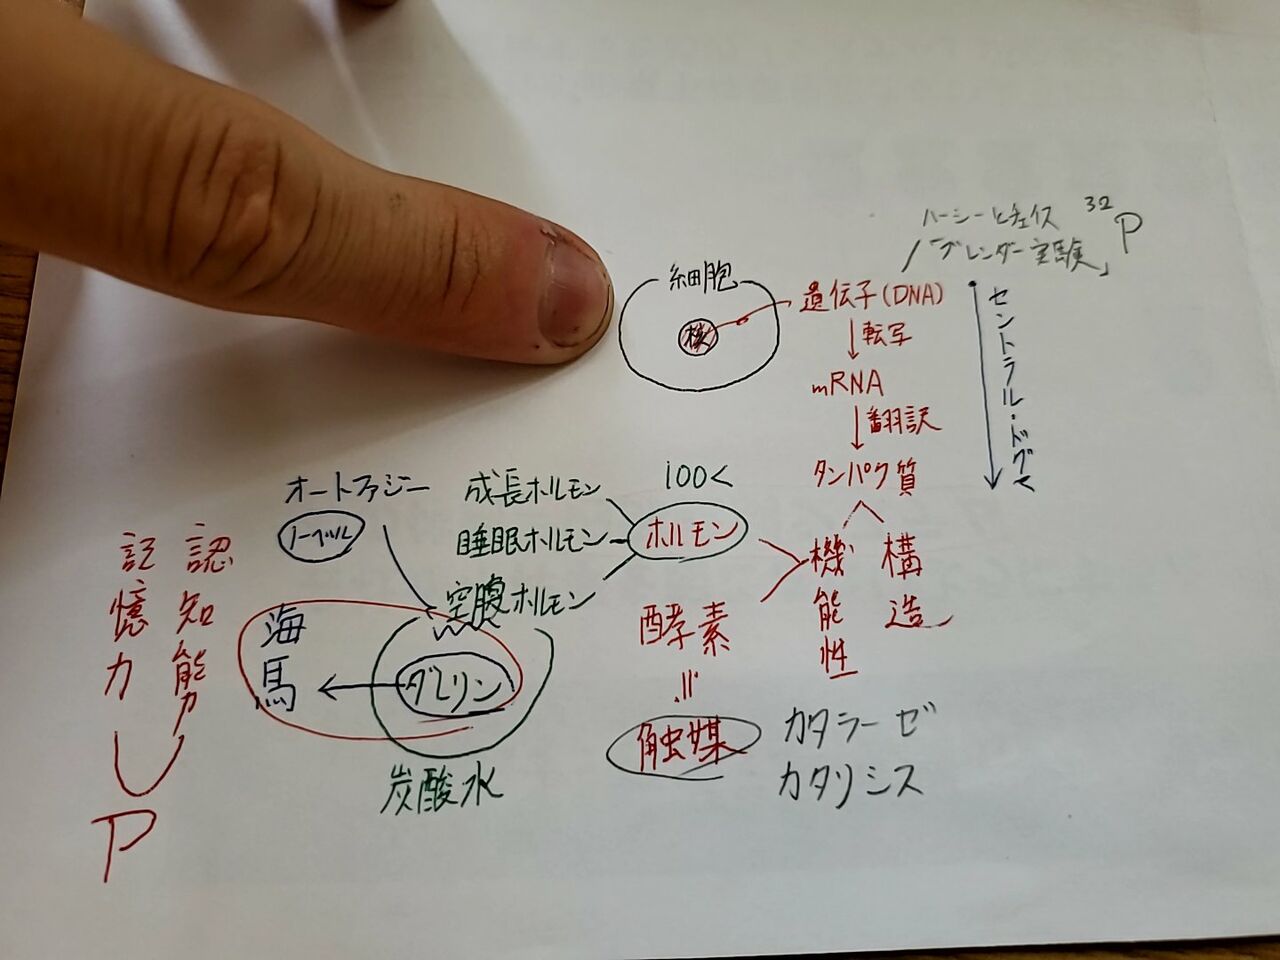 ハーシーとチェイス
32P
「ブレンダー実験」
細胞
核
遺伝子(DNA)
転写
mRNA
翻訳
タンパク質
セントラル・ドグマ
機能性
構造
100<
ホルモン
成長ホルモン
睡眠ホルモン
空腹ホルモン
オートファジー
ノーベル
グレリン
海馬
炭酸水
認知能力
記憶力
P
酵素
=
触媒
カタラーゼ
カタリシス